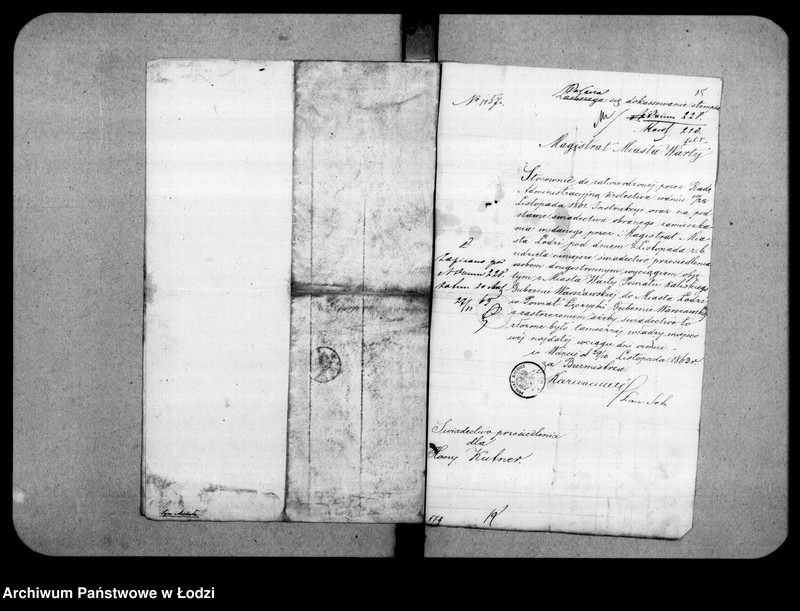 15
№ 1157.
się dokassowanie stempla
Numm 228.
210.
Magistrat Miasta Warty
Stosownie do zatwierdzonej przez Radę
Administracyjną Królestwa w dniu
Listopada 1861 Instrukcyi oraz na pod
stawie świadectwa obranego zamieszka
nia wydanego przez Magistrat Mia-
sta Łodzi pod dniem Listopada r. b.
udziela niniejsze świadectwo przesiedlenia
osobom drugostronnym wyciągiem obję
tym z Miasta Warty Powiatu Kaliskiego
Gubernii Warszawskiej do Miasta Łodzi
w Powiat Łęczycki Gubernii Warszawskiej
z zastrzeżeniem ażeby świadectwo to
złożone było tamecznej władzy miejsco
wéj najdalej w ciągu dni ośmiu
w Warcie d. Listopada 1863 r.
za Burmistrza
Zapisano
Numm 228
63
Świadectwo przesiedlenia
dla
Kutner.
179
19
Archiwum Państwowe w Łodzi